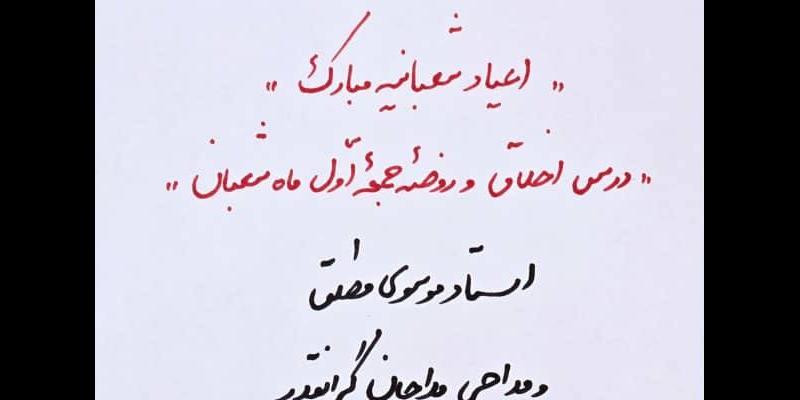 « اعیاد شعبانیه مبارک »
« درس اخلاق و روضهٔ جمعهٔ اوّل ماه شعبان »
استاد موسوی مطلق
و مداحی مداحان گرانقدر